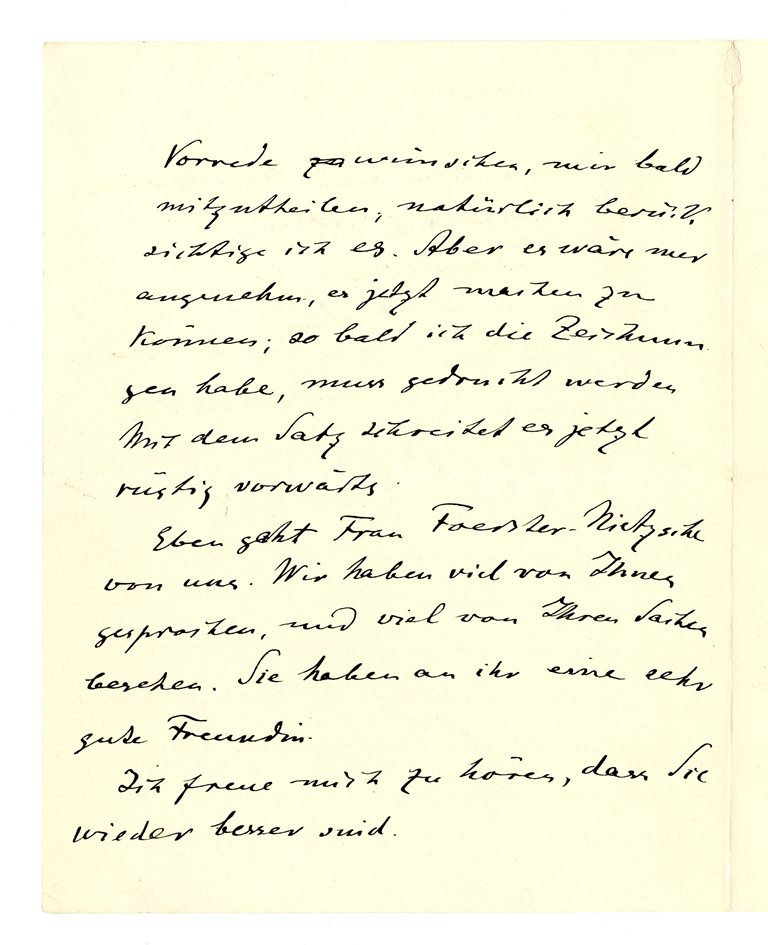 Vorrede zu wünschen, mir bald
mitzutheilen, natürlich berück
sichtige ich es. Aber es wäre mir
angenehm, es jetzt machen zu
können; so bald ich die Zeichnun
gen habe, muss gedruckt werden
Mit dem Satz schreitet es jetzt
rüstig vorwärts.
Eben geht Frau Foerster-Nietzsche
von uns. Wir haben viel von Ihnen
gesprochen, und viel von Ihren Sachen
besehen. Sie haben an ihr eine sehr
gute Freundin.
Ich freue mich zu hören, dass Sie
wieder besser sind.